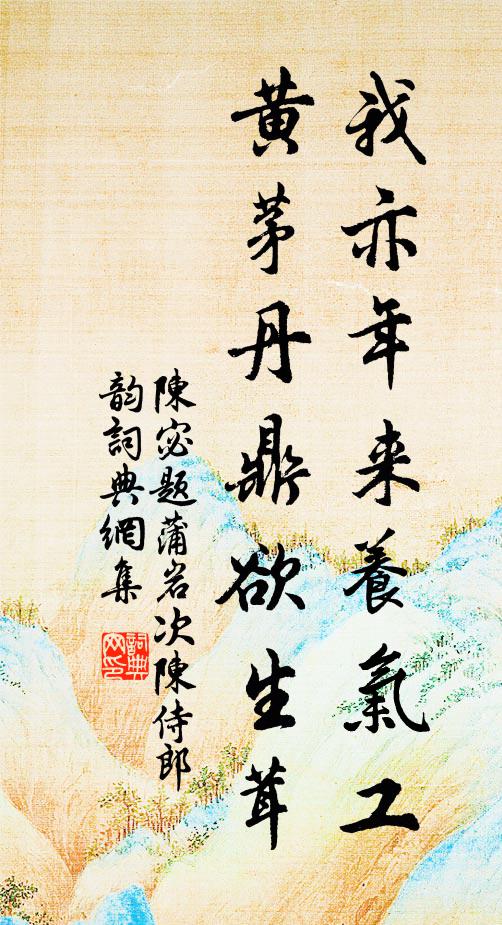 我亦年来養氣工
黄茅丹鼎欲生茸
陳宓题蒲岩次陳侍郎
韵詞典網集
詞典